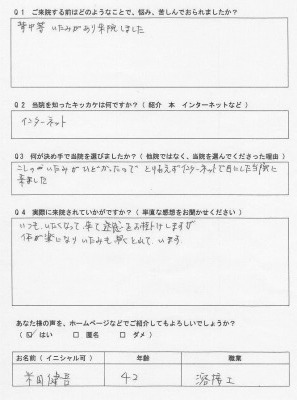 Q1 ご来院する前はどのようなことで、悩み、苦しんでおられましたか?
背中等 いたみがあり来院しました
Q2 当院を知ったキッカケは何ですか?(紹介 本 インターネットなど)
インターネット
Q3 何が決め手で当院を選びましたか?(他院ではなく、当院を選んでくださった理由)
こしのいたみがひどかったので とりあえずインターネットで目にした当院に
来ました
Q4 実際に来院されていかがですか?(率直な感想をお聞かせください)
いつも いたくなって 来て 施術をお受けしますが
体が楽になり いたみも 早く とれています
あなた様の声を、ホームページなどでご紹介してもよろしいでしょうか?
(☑ はい □ 匿名 □ ダメ)
お名前(イニシャル可) 年齢 職業
42 溶接工